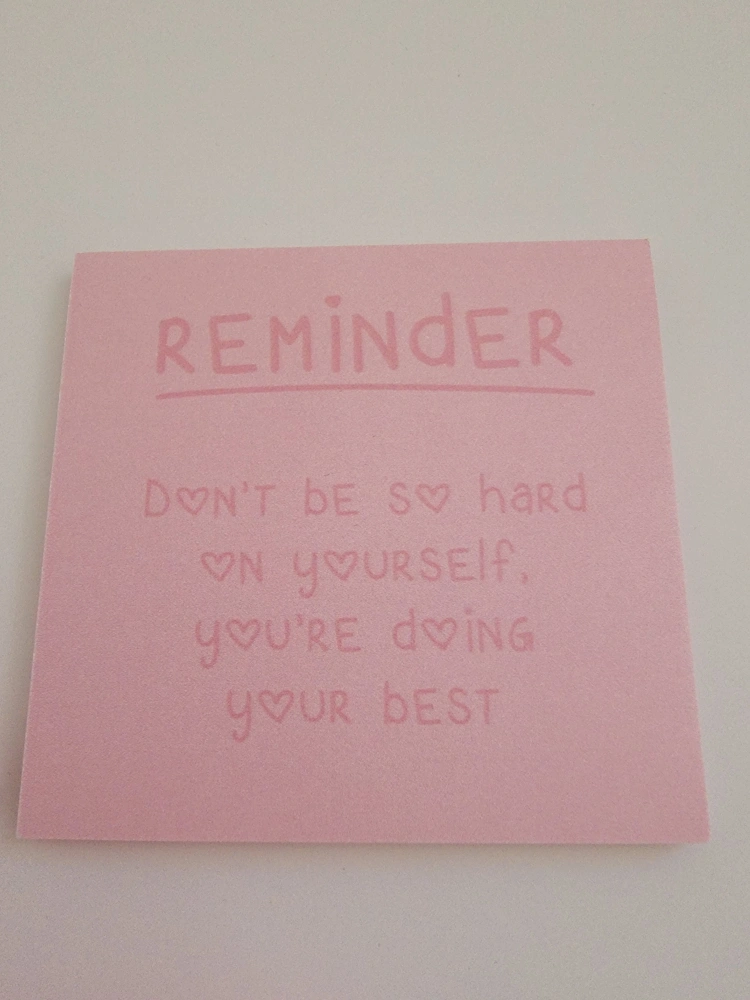 REMiNdER
D♡N'T bE S♡ haRd
♡N y♡URSElf,
y♡U'RE d♡iNG
y♡UR bEST